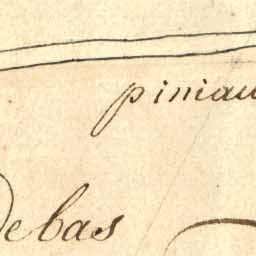 piniau
debas